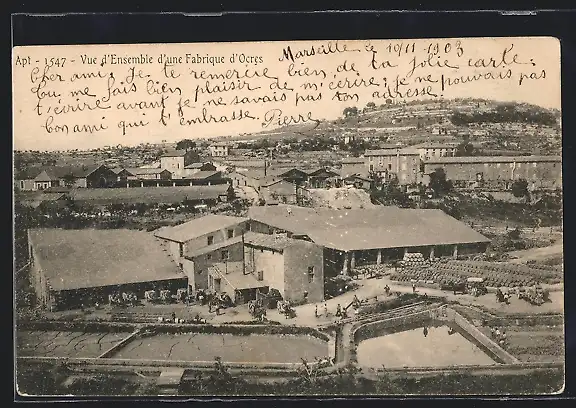 Apt - 1547 - Vue d'Ensemble d'une Fabrique d'Ocres
Marseille le 10/11 - 1903
Cher ami, Je te remercie bien de ta jolie carte.
tu me fais bien plaisir de m'écrire; je ne pouvais pas
t'écrire avant je ne savais pas ton adresse.
Ton ami qui t'embrasse. Pierre